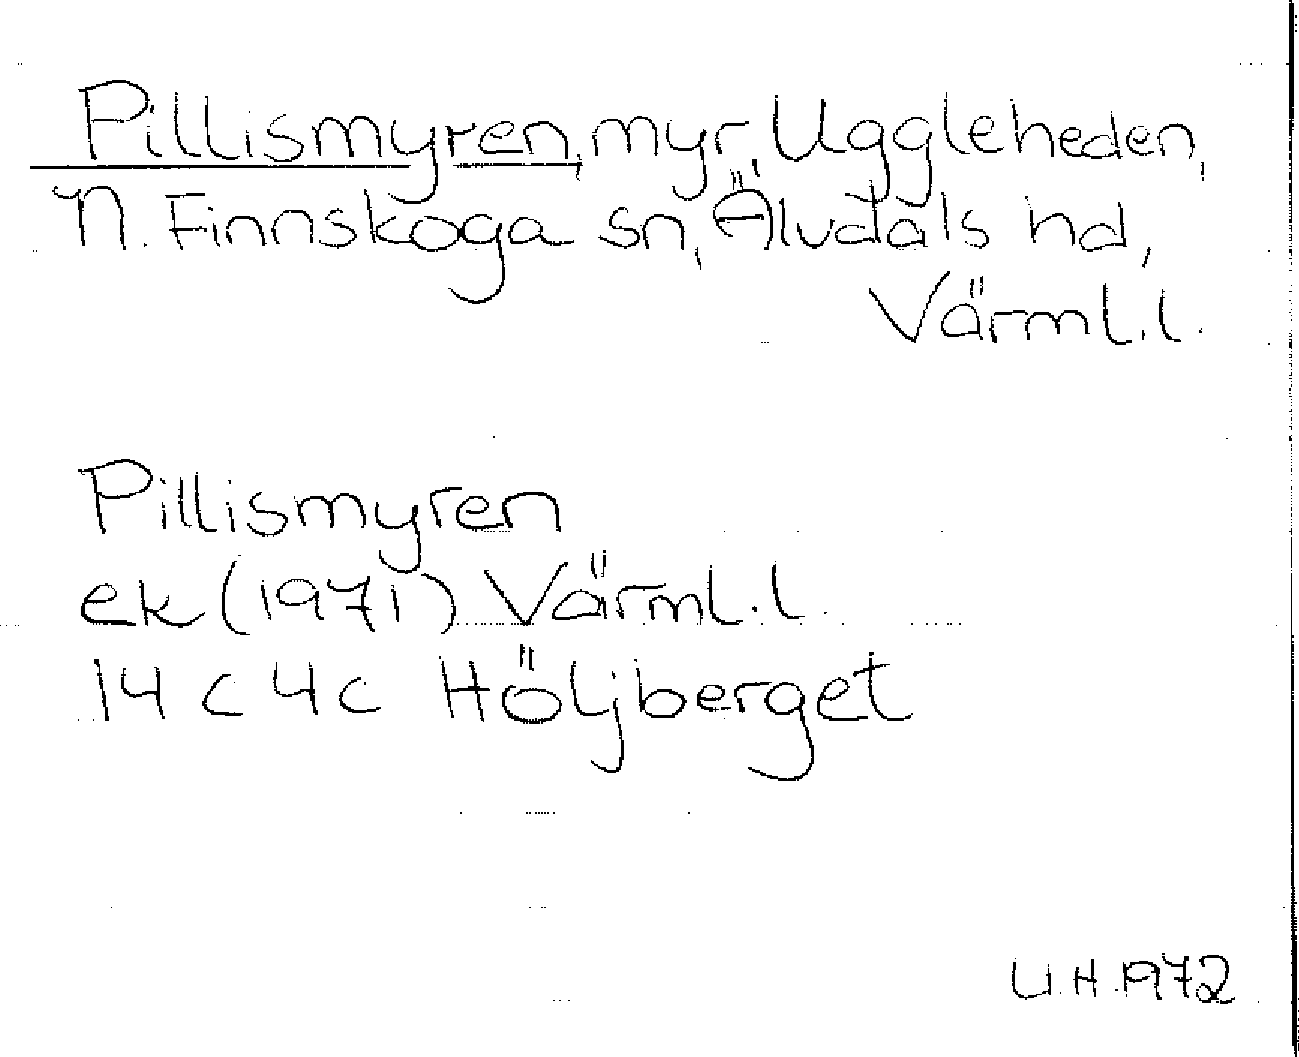 Pillismyren, myr, Uggleheden,
N. Finnskoga sn, Älvdals hd,
Värml. l.
Pillismyren
ek (1971) Värml. l.
14 c 4 c Höljberget
U.H. 1972